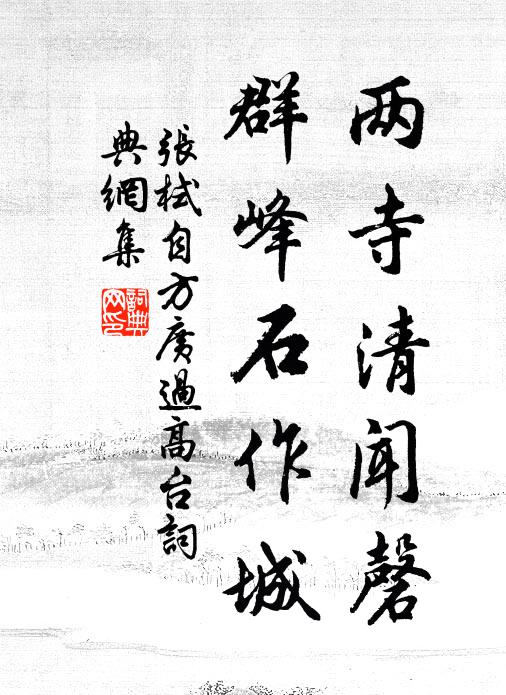 两寺清闻磬
群峰石作城
張栻自方廣過高台詞
典網集
詞典
网印